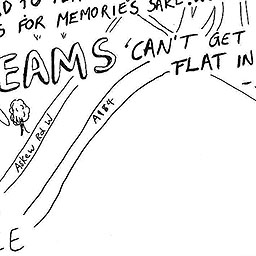 FOR MEMORIE'S SAKE...
EAMS 'CAN'T GET
FLAT IN
Askew Rd W
A184